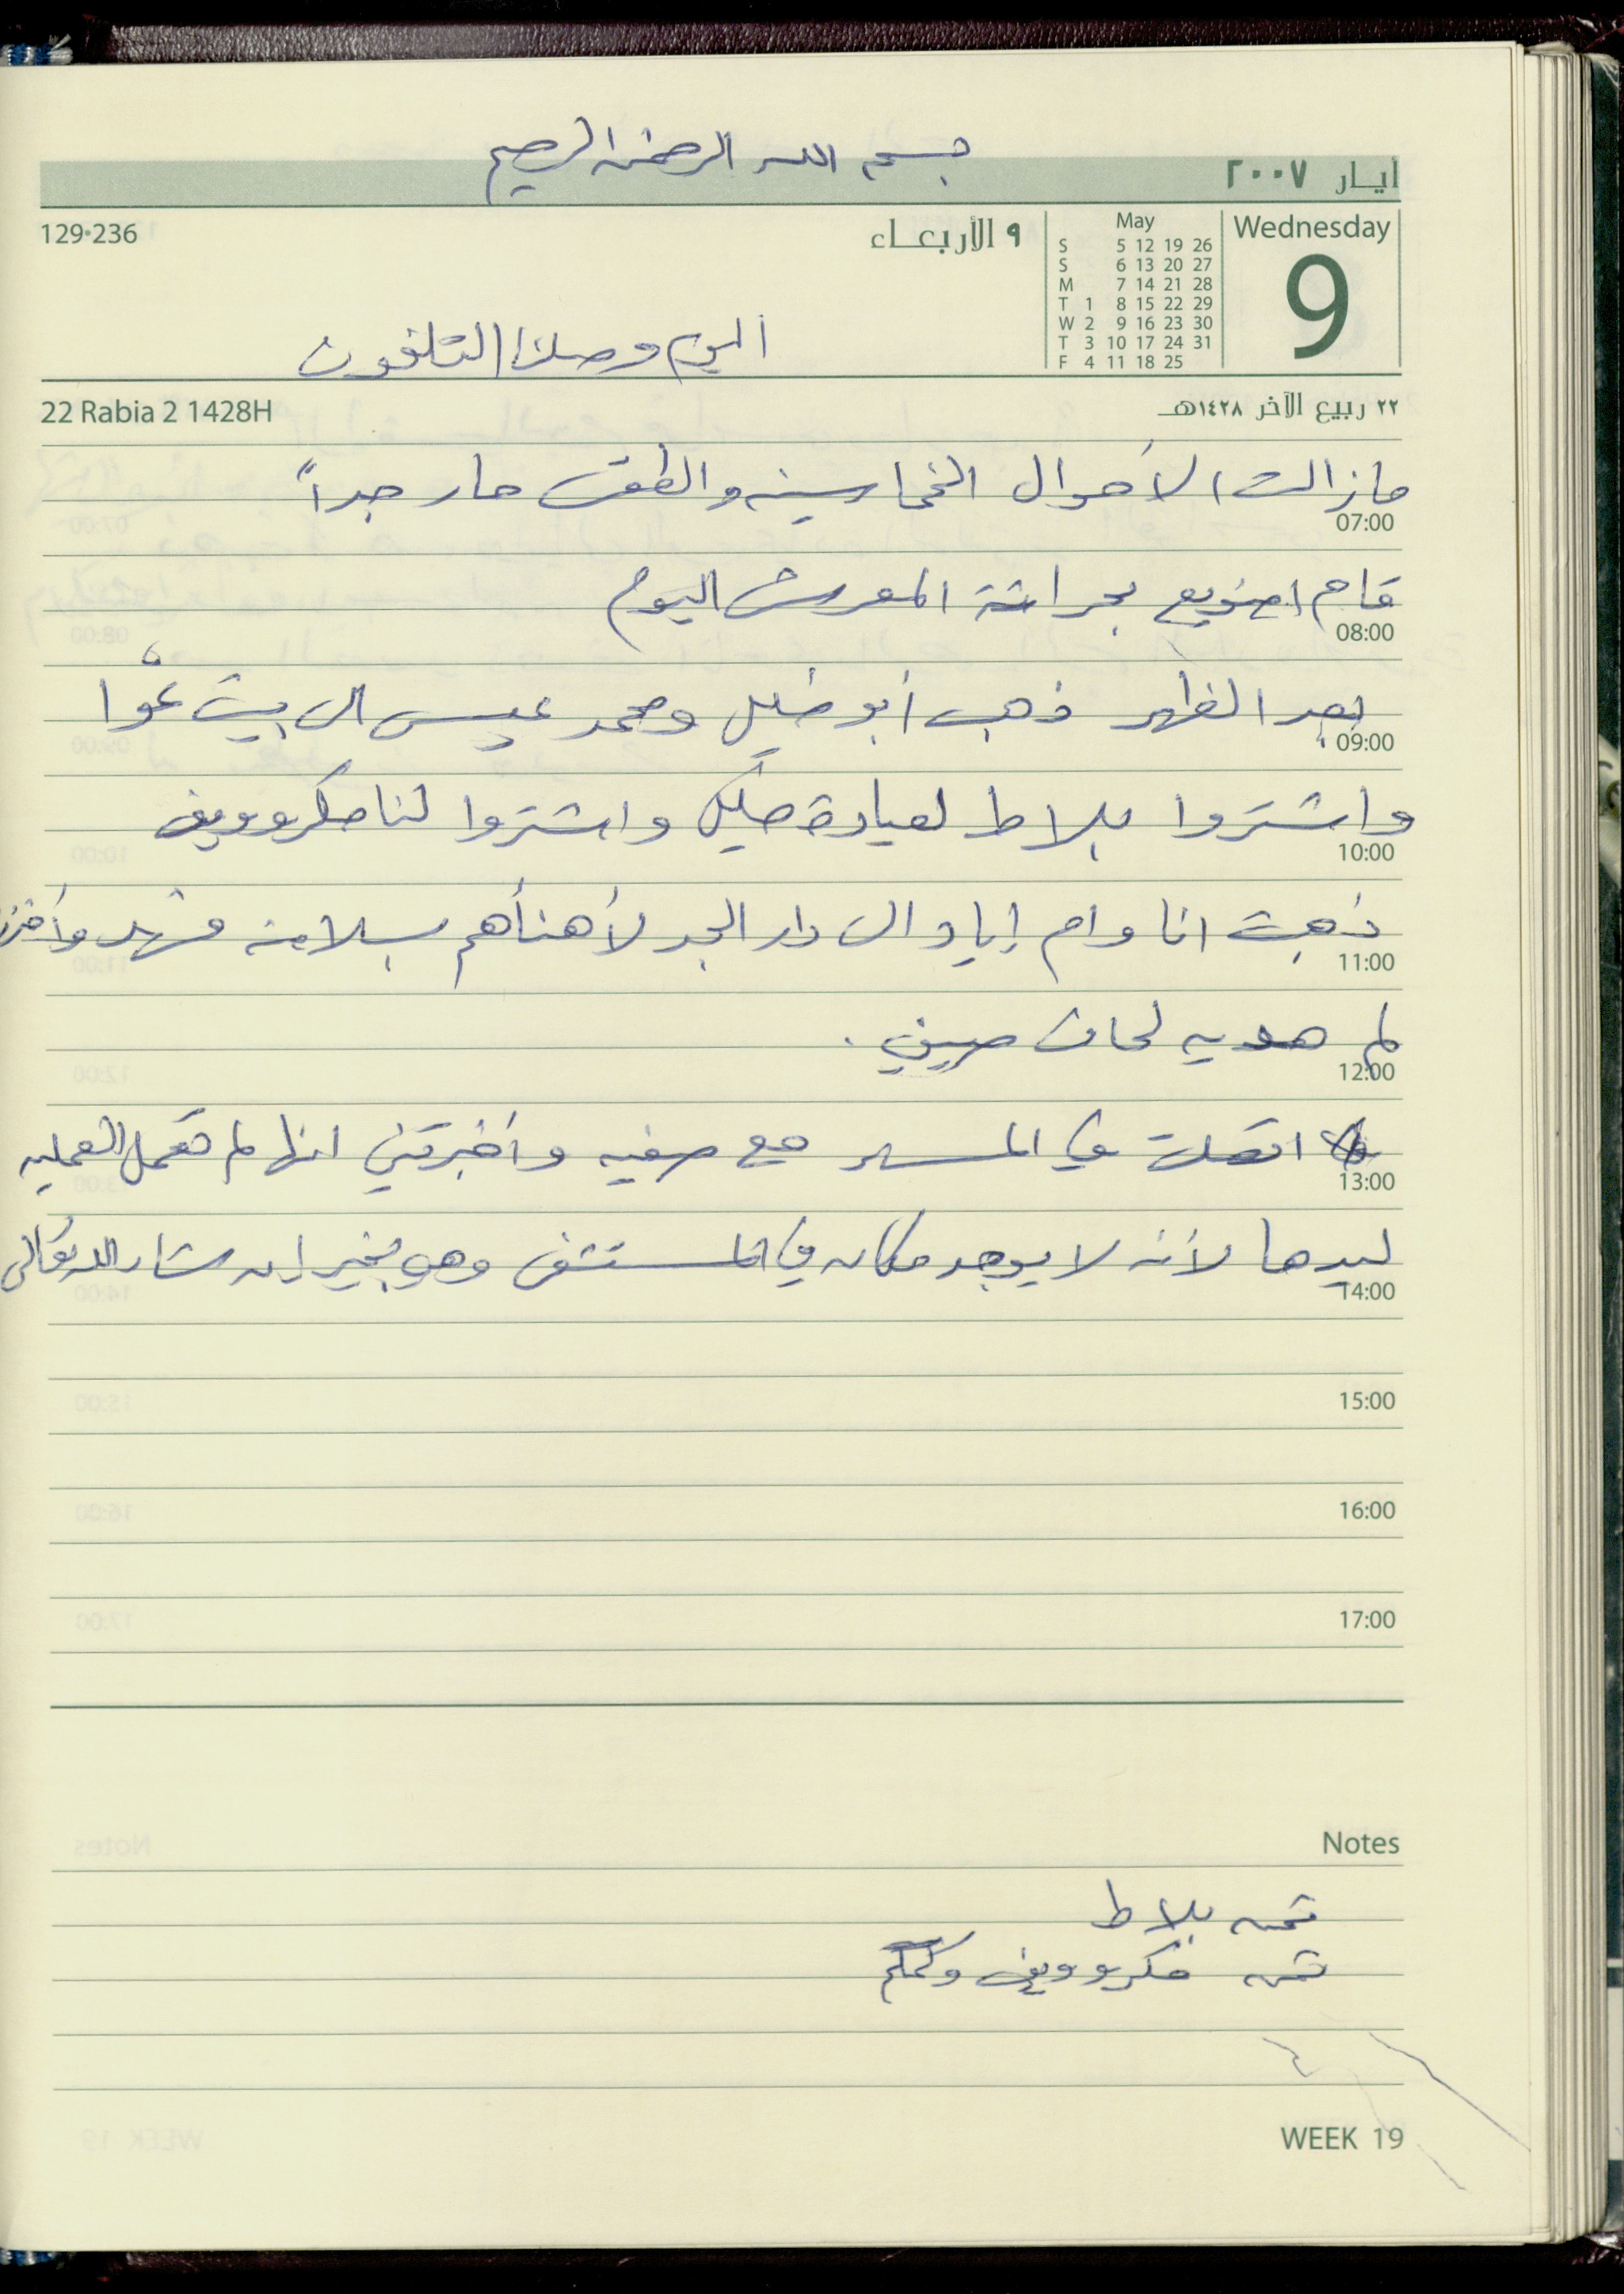 بسم الله الرحمن الرحيم
أيار ٢٠٠٧
Wednesday
9
May
S 5 12 19 26
S 6 13 20 27
M 7 14 21 28
T 1 8 15 22 29
W 2 9 16 23 30
T 3 10 17 24 31
F 4 11 18 25
٩ الأربعاء
129•236
اليوم وصلنا التلفون
٢٢ ربيع الآخر ١٤٢٨هـ
22 Rabia 2 1428H
مازالت الأحوال الخماسينيه والطقس حار جداً
07:00
قام بحراثة المعرش اليوم
08:00
بعد الظهر ذهب أبو خليل ومحمد عيسى الى بيت عوّا
09:00
واشتروا بلاط لعيادة خليل واشتروا لنا مكروويف
10:00
ذهبت انا وام إياد الى دار الجد لأهنأهم بسلامة فهد وأخذنا
11:00
لهم هديه لحاف صيفي.
12:00
اتصلت في المساء مع صفيه وأخبرتني انها لم تعمل العمليه
13:00
ليدها لأنه لا يوجد مكان في المستشفى وهي بخير إن شاء الله تعالى
14:00
15:00
16:00
17:00
Notes
ثمن بلاط
ثمن مكروويف
WEEK 19